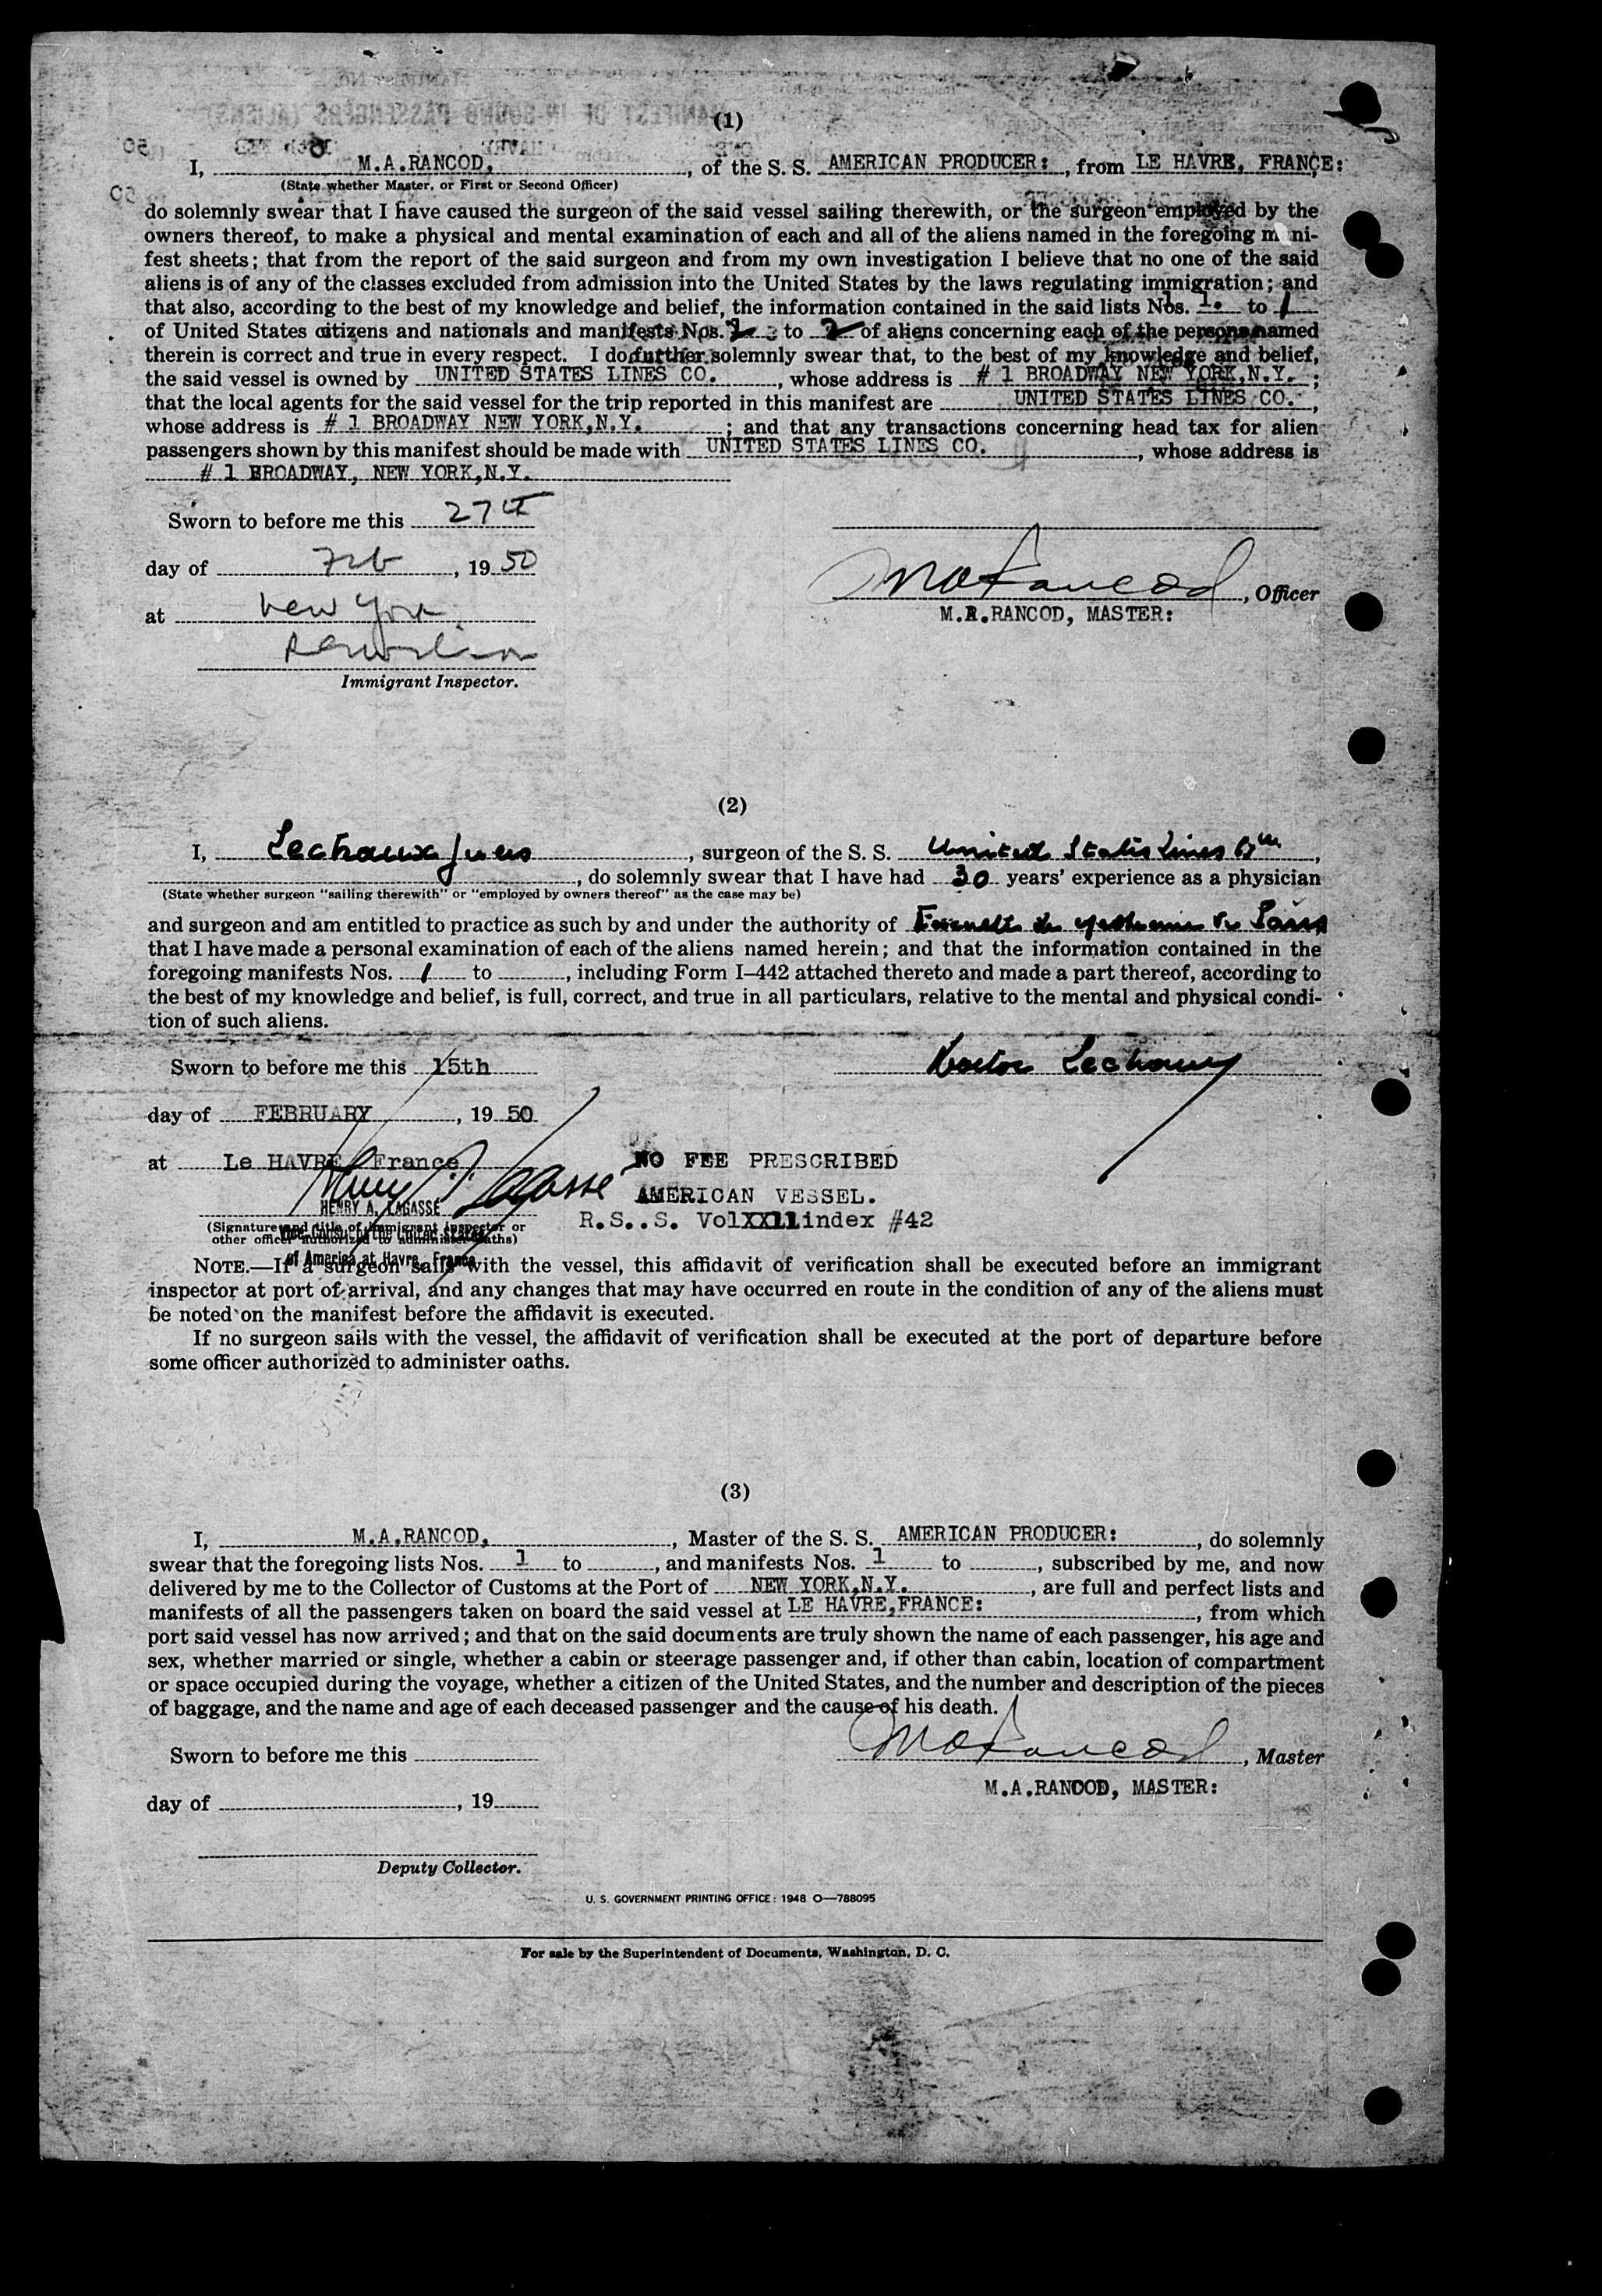 (1)
I, M.A.RANCOD, of the S. S. AMERICAN PRODUCER: , from LE HAVRE, FRANCE:
(State whether Master, or First or Second Officer)
do solemnly swear that I have caused the surgeon of the said vessel sailing therewith, or the surgeon employed by the
owners thereof, to make a physical and mental examination of each and all of the aliens named in the foregoing mani-
fest sheets; that from the report of the said surgeon and from my own investigation I believe that no one of the said
aliens is of any of the classes excluded from admission into the United States by the laws regulating immigration; and
that also, according to the best of my knowledge and belief, the information contained in the said lists Nos. 1. to 1
of United States citizens and nationals and manifests Nos. 2 to 2 of aliens concerning each of the persons named
therein is correct and true in every respect. I do further solemnly swear that, to the best of my knowledge and belief,
the said vessel is owned by UNITED STATES LINES CO. , whose address is # 1 BROADWAY NEW YORK,N.Y. ;
that the local agents for the said vessel for the trip reported in this manifest are UNITED STATES LINES CO. ,
whose address is # 1 BROADWAY NEW YORK,N.Y. ; and that any transactions concerning head tax for alien
passengers shown by this manifest should be made with UNITED STATES LINES CO. , whose address is
# 1 BROADWAY, NEW YORK,N.Y.
Sworn to before me this 27th
day of Feb , 19 50
MARancod , Officer
at New York
M.R.RANCOD, MASTER:
Immigrant Inspector.
(2)
I, Lechaux Jules , surgeon of the S. S. United States Lines ,
, do solemnly swear that I have had 30 years' experience as a physician
(State whether surgeon "sailing therewith" or "employed by owners thereof" as the case may be)
and surgeon and am entitled to practice as such by and under the authority of de Paris
that I have made a personal examination of each of the aliens named herein; and that the information contained in the
foregoing manifests Nos. 1 to , including Form I-442 attached thereto and made a part thereof, according to
the best of my knowledge and belief, is full, correct, and true in all particulars, relative to the mental and physical condi-
tion of such aliens.
Sworn to before me this 15th
Doctor Lechaux
day of FEBRUARY , 19 50
at Le HAVRE, France
NO FEE PRESCRIBED
Henry A. Lagasse
AMERICAN VESSEL.
HENRY A. LAGASSE
R.S..S. VolXX11index #42
(Signature and title of immigrant inspector or
other officer authorized to administer oaths)
Vice Consul of the United States
of America at Havre, France
NOTE.—If a surgeon sails with the vessel, this affidavit of verification shall be executed before an immigrant
inspector at port of arrival, and any changes that may have occurred en route in the condition of any of the aliens must
be noted on the manifest before the affidavit is executed.
If no surgeon sails with the vessel, the affidavit of verification shall be executed at the port of departure before
some officer authorized to administer oaths.
(3)
I, M.A.RANCOD, , Master of the S. S. AMERICAN PRODUCER: , do solemnly
swear that the foregoing lists Nos. 1 to , and manifests Nos. 1 to , subscribed by me, and now
delivered by me to the Collector of Customs at the Port of NEW YORK,N.Y. , are full and perfect lists and
manifests of all the passengers taken on board the said vessel at LE HAVRE,FRANCE: , from which
port said vessel has now arrived; and that on the said documents are truly shown the name of each passenger, his age and
sex, whether married or single, whether a cabin or steerage passenger and, if other than cabin, location of compartment
or space occupied during the voyage, whether a citizen of the United States, and the number and description of the pieces
of baggage, and the name and age of each deceased passenger and the cause of his death.
Sworn to before me this
MARancod , Master
M.A.RANCOD, MASTER:
day of , 19
Deputy Collector.
U. S. GOVERNMENT PRINTING OFFICE: 1948 O—788095
For sale by the Superintendent of Documents, Washington, D. C.